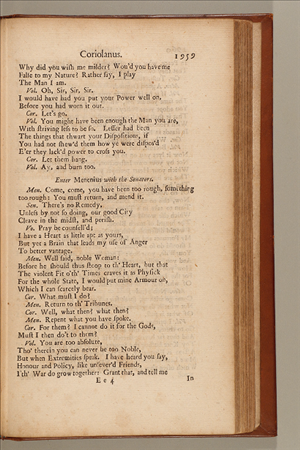 Coriolanus. 1959
Why did you wish me milder? Wou'd you have me
False to my Nature? Rather say, I play
The Man I am.
Vol. Oh, Sir, Sir, Sir.
I would have had you put your Power well on,
Before you had worn it out.
Cor. Let's go.
Vol. You might have been enough the Man you are,
With striving less to be so. Lesser had been
The things that thwart your Dispositions, if
You had not shew'd them how ye were dispos'd
E'er they lack'd power to cross you.
Cor. Let them hang.
Vol. Ay, and burn too.
Enter Menenius with the Senators.
Men. Come, come, you have been too rough, something
too rough: You must return, and mend it.
Sen. There's no Remedy,
Unless by not so doing, our good City
Cleave in the midst, and perish.
Vo. Pray be counsell'd;
I have a Heart as little apt as yours,
But yet a Brain that leads my use of Anger
To better vantage.
Men. Well said, noble Woman:
Before he should thus stoop to th' Heart, but that
The violent Fit o'th' Times craves it as Physick
For the whole State, I would put mine Armour on,
Which I can scarcely bear.
Cor. What must I do?
Men. Return to th' Tribunes.
Cor. Well, what then? what then?
Men. Repent what you have spoke.
Cor. For them? I cannot do it for the Gods,
Must I then do't to them?
Vol. You are too absolute,
Tho' therein you can never be too Noble,
But when Extremities speak. I have heard you say,
Honour and Policy, like unsever'd Friends,
I'th' War do grow together: Grant that, and tell me
E e 4 In